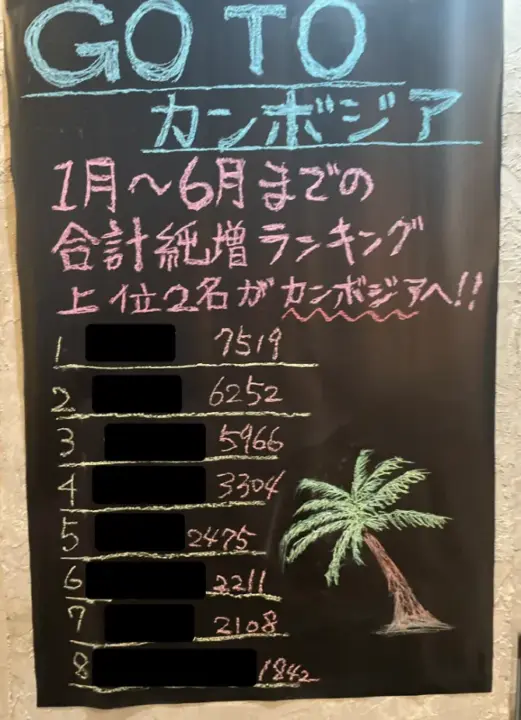 GO TO
カンボジア
1月〜6月までの
合計純増ランキング
上位2名がカンボジアへ!!
1 7519
2 6252
3 5966
4 3304
5 2475
6 2211
7 2108
8 1842